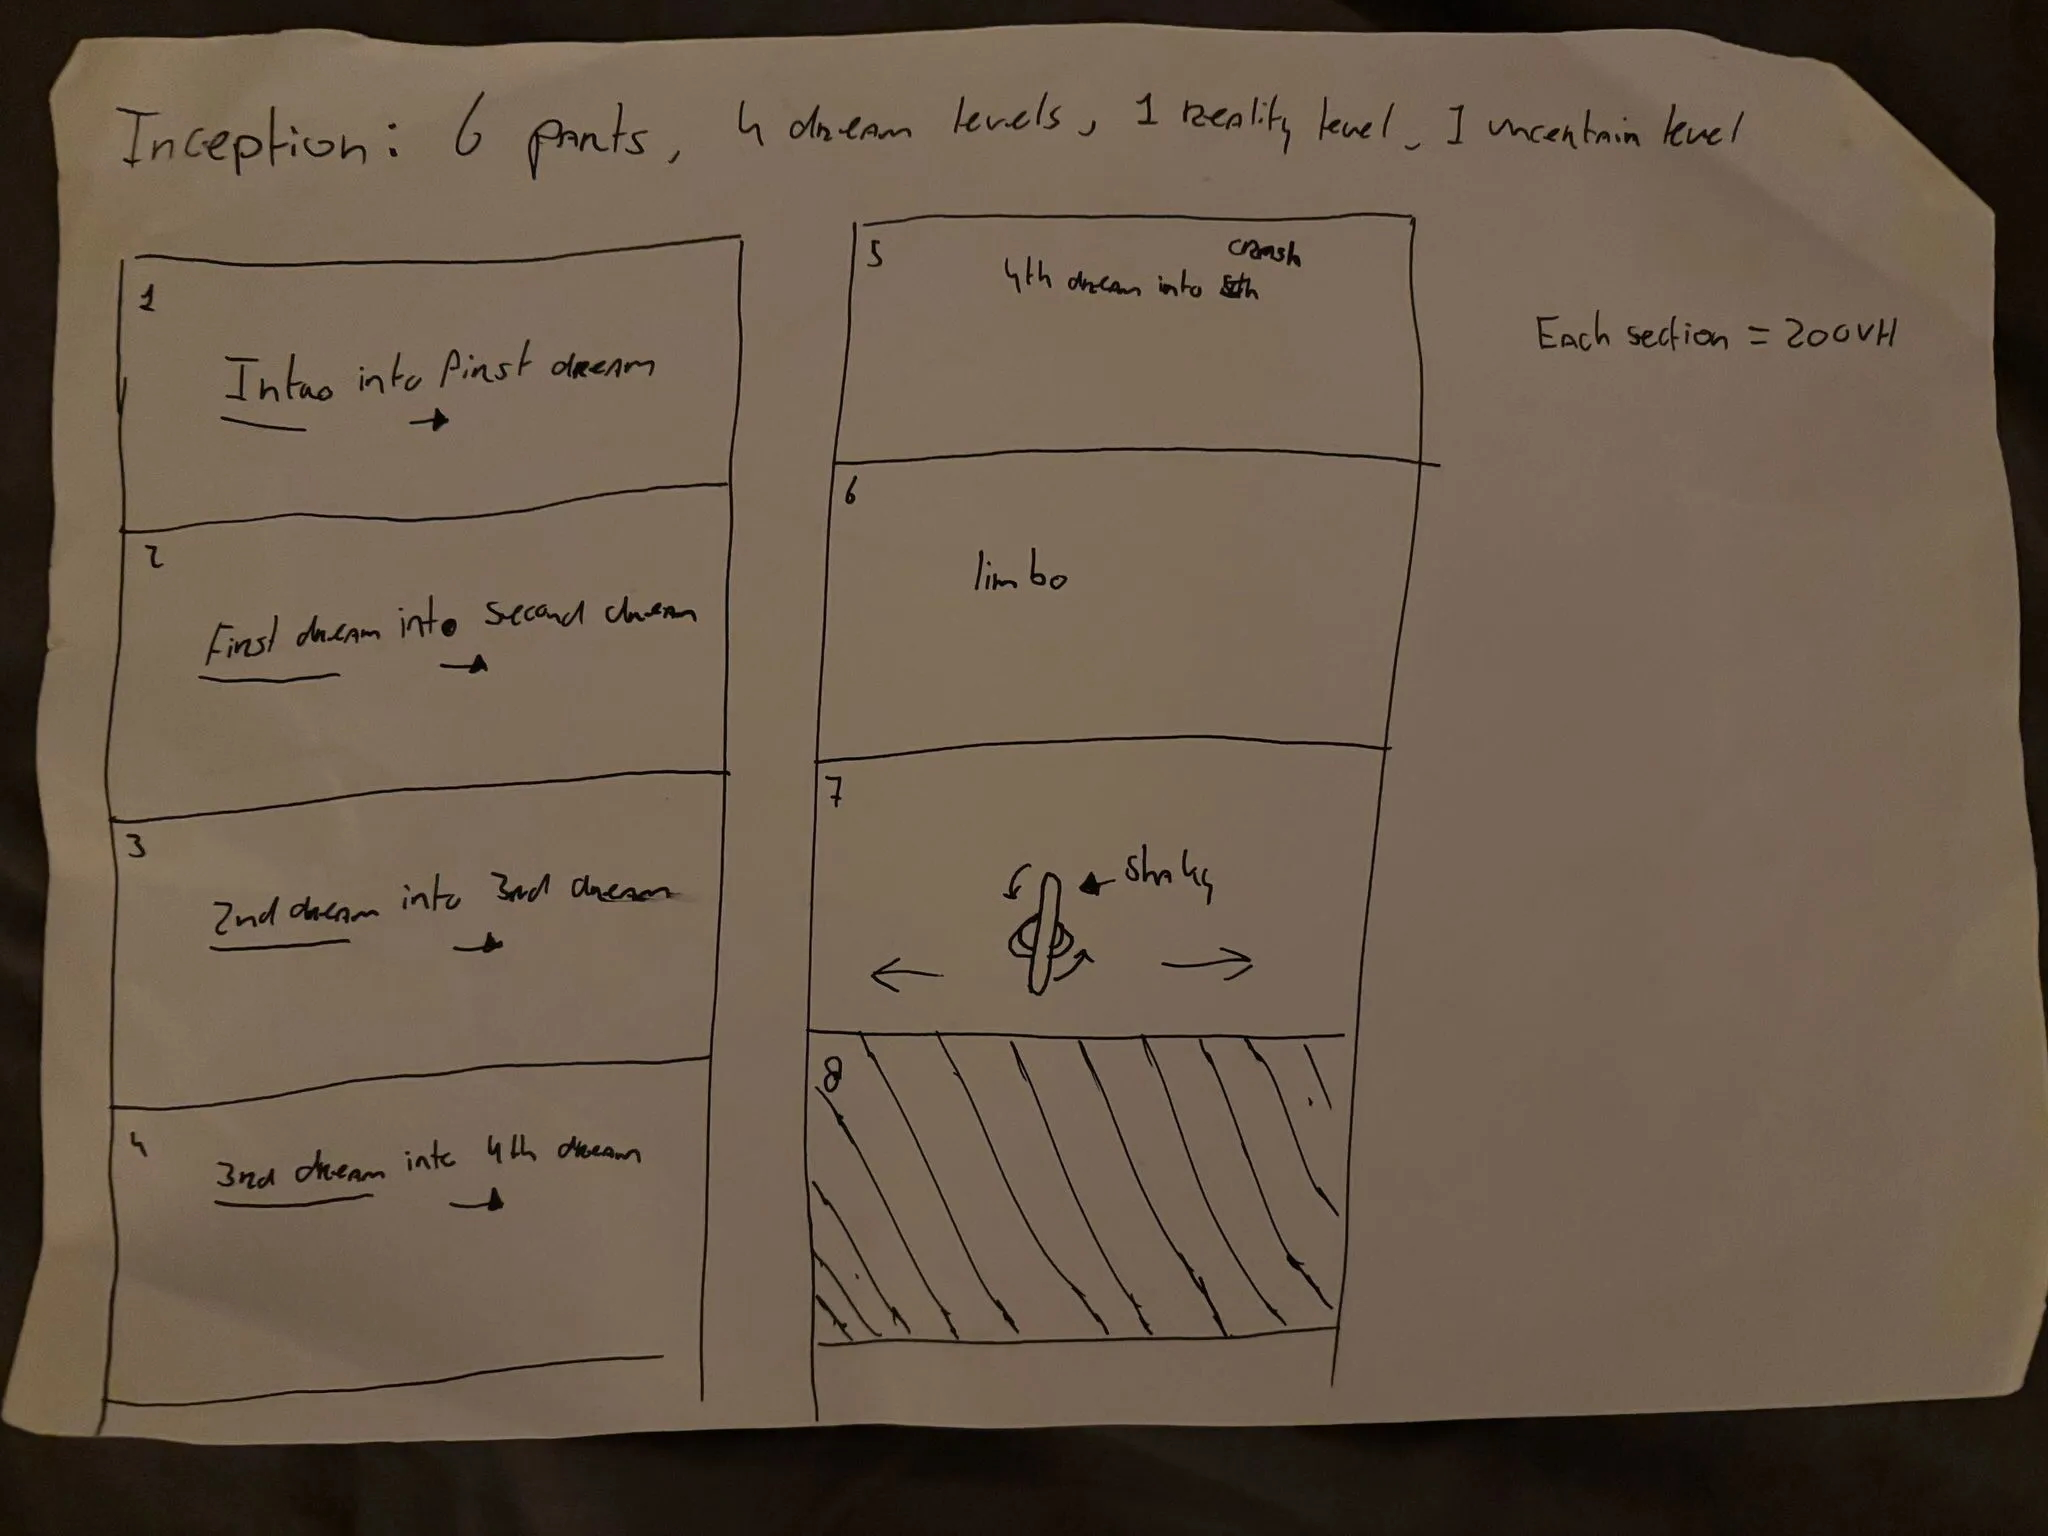 Inception: 6 parts, 4 dream levels, 1 reality level, 1 uncertain level
1
Intro into first dream
2
First dream into second dream
3
2nd dream into 3rd dream
4
3rd dream into 4th dream
5
crash
4th dream into 5th
6
limbo
7
shaky
8
Each section = 200VH